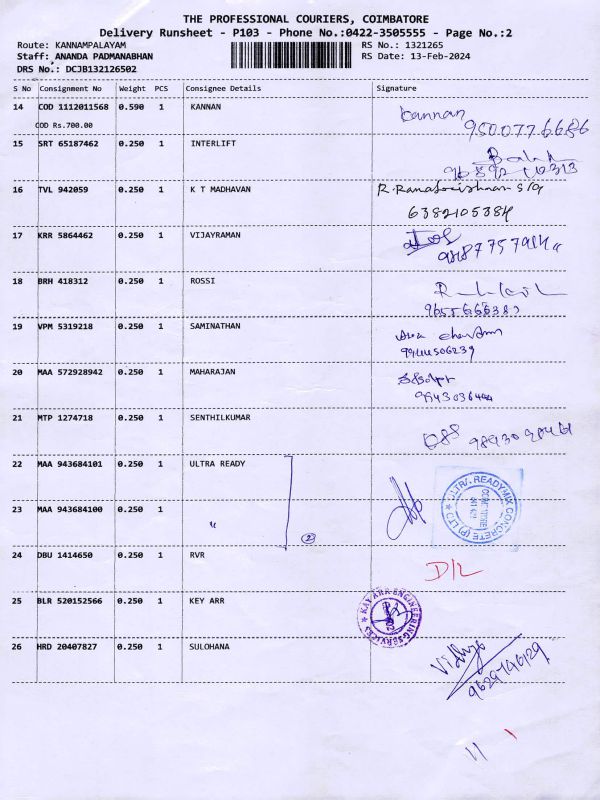 THE PROFESSIONAL COURIERS, COIMBATORE
Delivery Runsheet - P103 - Phone No.:0422-3505555 - Page No.:2
Route: KANNAMPALAYAM RS No.: 1321265
Staff: ANANDA PADMANABHAN RS Date: 13-Feb-2024
DRS No.: DCJB132126502
S No Consignment No Weight PCS Consignee Details Signature
14 COD 1112011568 0.590 1 KANNAN kannan
COD Rs.700.00 9500776686
15 SRT 65187462 0.250 1 INTERLIFT
16 TVL 942059 0.250 1 K T MADHAVAN
6382105384
17 KRR 5864462 0.250 1 VIJAYRAMAN
18 BRH 418312 0.250 1 ROSSI
19 VPM 5319218 0.250 1 SAMINATHAN
9944506239
20 MAA 572928942 0.250 1 MAHARAJAN
21 MTP 1274718 0.250 1 SENTHILKUMAR
22 MAA 943684101 0.250 1 ULTRA READY
ULTRA READYMIX CONCRETE (P) LTD
23 MAA 943684100 0.250 1 "
2
24 DBU 1414650 0.250 1 RVR D/L
25 BLR 520152566 0.250 1 KEY ARR
KAY ARR ENGINEERING SERVICES
26 HRD 20407827 0.250 1 SULOHANA Vidhya
9629746129